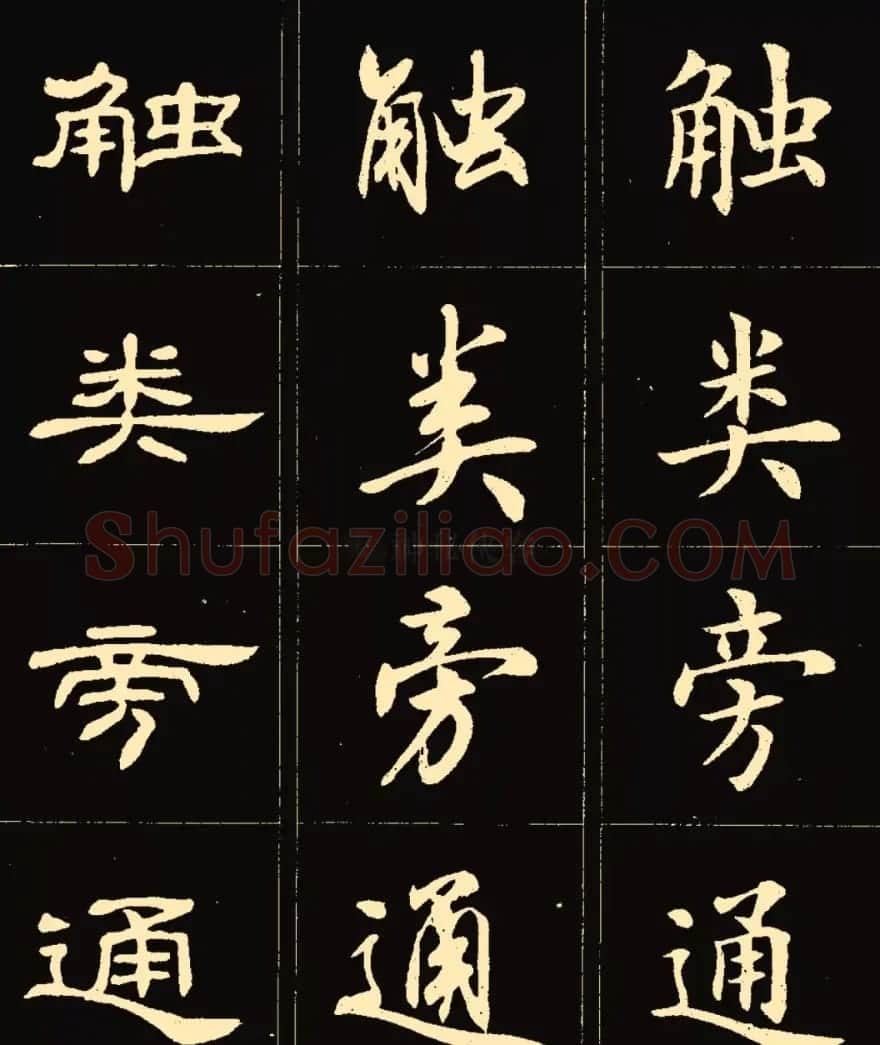 触 触 触
类 类 类
Shufaziliao.COM
旁 旁 旁
通 通 通